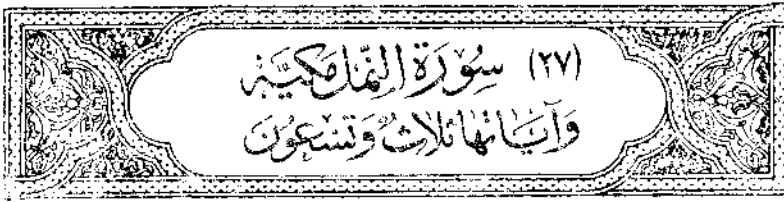 (٢٧) سُورَةُ النَّمْلِ مَكِيَّة
وَآيَاتهَا ثَلَاثٌ وَتِسْعُونَ